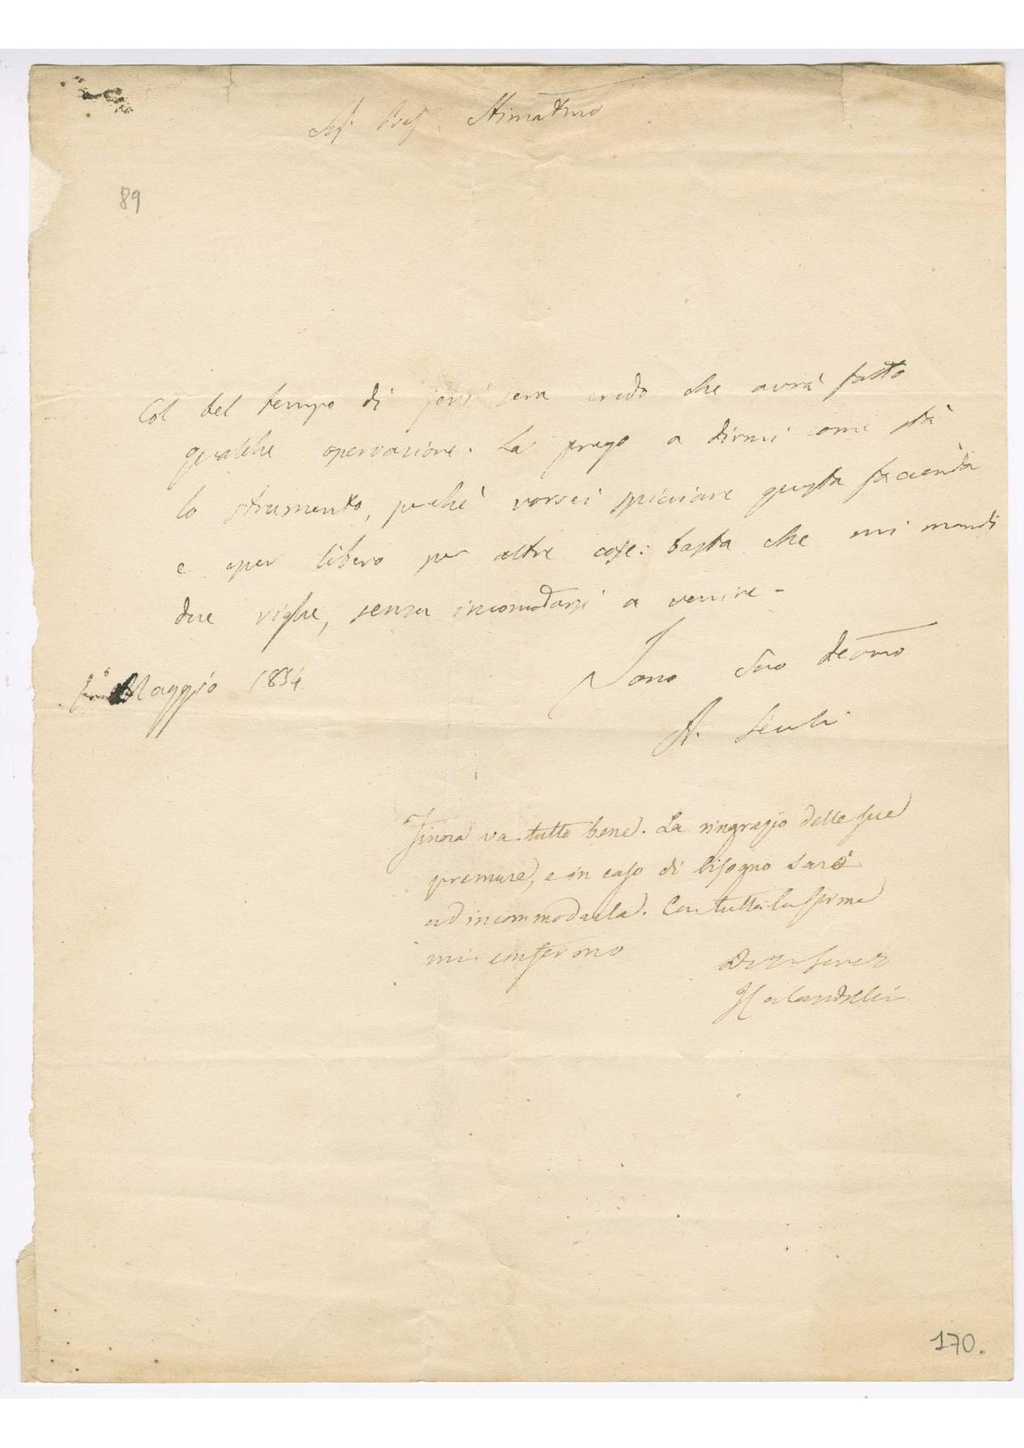 Stimatmo
89
Col bel tempo di jeri sera credo che avrà fatto
qualche osservazione. La prego a dirmi come stà
lo strumento, perchè vorrei spicciare questa faccenda
e esser libero per altre cose: basta che mi mandi
due righe, senza incomodarsi a venire -
Sono Suo devmo
Maggio 1834
A.
Finora va tutto bene. La ringrazio delle sue
premure, e in caso di bisogno sarò
ad incommodarla. Con tutta la stima
mi confermo
170.